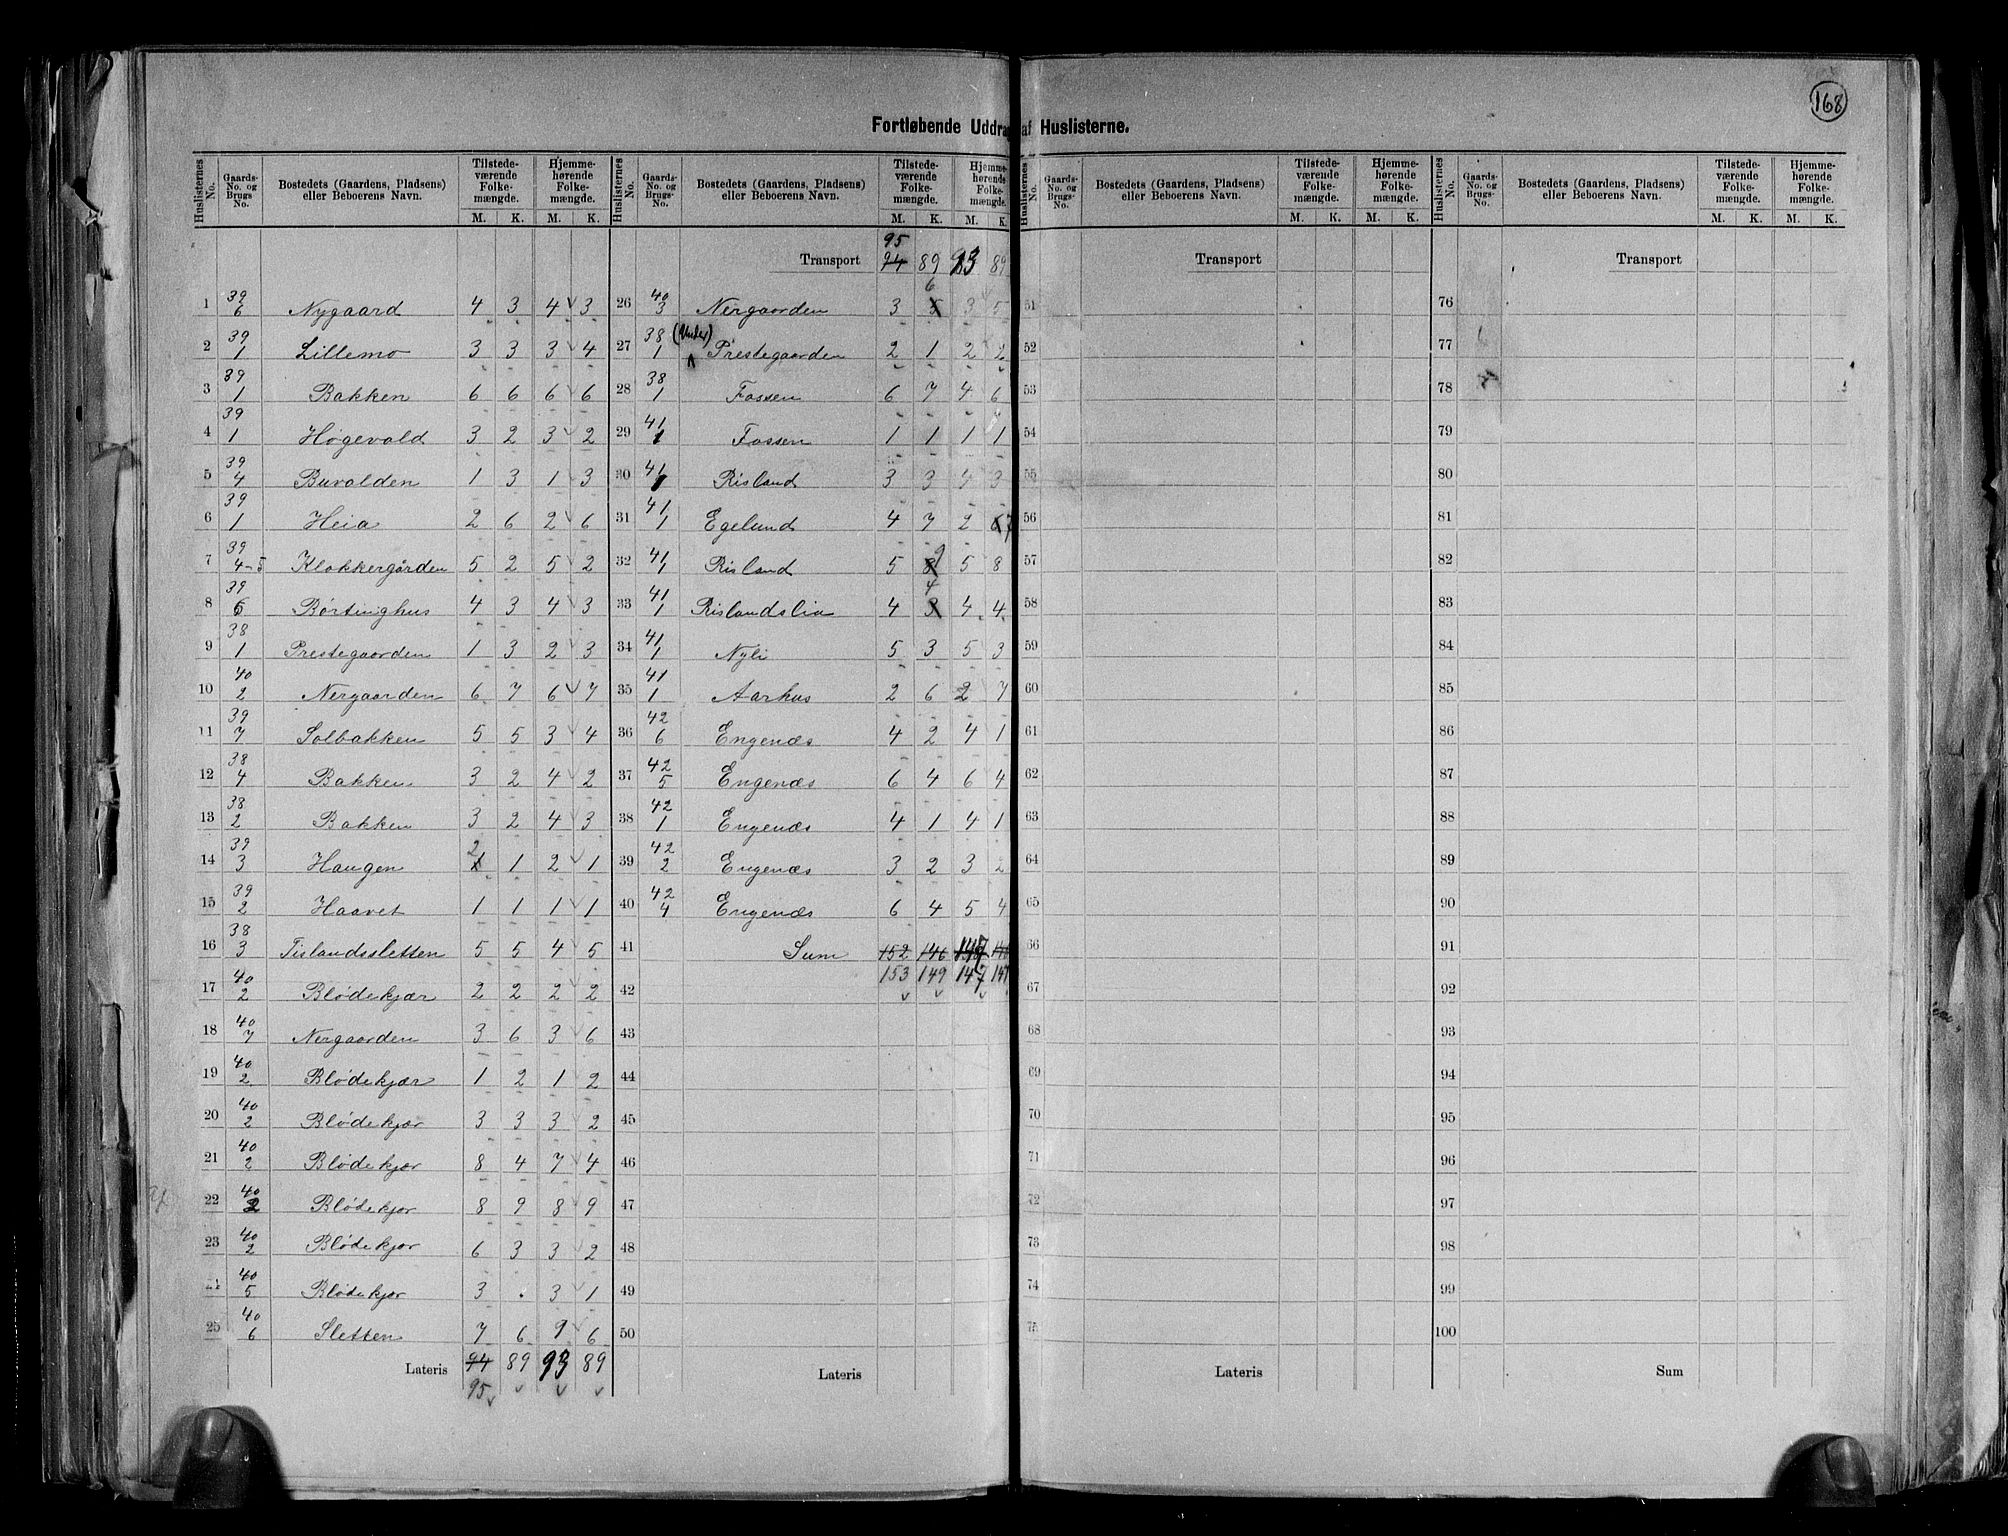 168
Fortløbende Uddrag af Huslisterne.
Huslisternes No. | Gaards-No. og Brugs-No. | Bostedets (Gaardens, Pladsens) eller Beboerens Navn. | Tilstedeværende Folkemængde. M. K. | Hjemmehørende Folkemængde. M. K.
1 39/6 Nygaard 4 3 4 3
2 39/1 Lillemo 3 3 3 4
3 39/1 Bakken 6 6 6 6
4 39/1 Høgevold 3 2 3 2
5 39/4 Buvolden 1 3 1 3
6 39/1 Heia 2 6 2 6
7 39/4-5 Klokkergården 5 2 5 2
8 39/6 Børtinghus 4 3 4 3
9 38/1 Prestegaarden 1 3 2 3
10 40/2 Nergaarden 6 7 6 7
11 39/7 Solbakken 5 5 3 4
12 38/4 Bakken 3 2 4 2
13 38/2 Bakken 3 2 4 3
14 39/3 Haugen 2 1 2 1
15 39/2 Haavet 1 1 1 1
16 38/3 Tislandssletten 5 5 4 5
17 40/2 Blødekjær 2 2 2 2
18 40/7 Nergaarden 3 6 3 6
19 40/2 Blødekjær 1 2 1 2
20 40/2 Blødekjær 3 3 3 2
21 40/2 Blødekjær 8 4 7 4
22 40/2 Blødekjær 8 9 8 9
23 40/2 Blødekjær 6 3 3 2
24 40/5 Blødekjær 3 . 3 1
25 40/6 Sletten 7 6 9 6
Lateris 94 89 93 89
95
Huslisternes No. | Gaards-No. og Brugs-No. | Bostedets (Gaardens, Pladsens) eller Beboerens Navn. | Tilstedeværende Folkemængde. M. K. | Hjemmehørende Folkemængde. M. K.
95
Transport 94 89 93 89
26 40/3 Nergaarden 3 6 3 5
27 38/1 (Under) Prestegaarden 2 1 2 2
28 38/1 Fossen 6 7 4 6
29 41/1 Fossen 1 1 1 1
30 41/1 Risland 3 3 4 3
31 41/1 Egelund 4 7 2 7
32 41/1 Risland 5 9 5 8
33 41/1 Rislandslia 4 4 4 4
34 41/1 Nyli 5 3 5 3
35 41/1 Aarhus 2 6 2 7
36 42/6 Engenæs 4 2 4 1
37 42/5 Engenæs 6 4 6 4
38 42/1 Engenæs 4 1 4 1
39 42/2 Engenæs 3 2 3 2
40 42/4 Engenæs 6 4 5 4
41 Sum 152 146
42 153 149 147
43
44
45
46
47
48
49
50
Lateris
Huslisternes No. | Gaards-No. og Brugs-No. | Bostedets (Gaardens, Pladsens) eller Beboerens Navn. | Tilstedeværende Folkemængde. M. K. | Hjemmehørende Folkemængde. M. K.
Transport
51
52
53
54
55
56
57
58
59
60
61
62
63
64
65
66
67
68
69
70
71
72
73
74
75
Lateris
Huslisternes No. | Gaards-No. og Brugs-No. | Bostedets (Gaardens, Pladsens) eller Beboerens Navn. | Tilstedeværende Folkemængde. M. K. | Hjemmehørende Folkemængde. M. K.
Transport
76
77
78
79
80
81
82
83
84
85
86
87
88
89
90
91
92
93
94
95
96
97
98
99
100
Sum